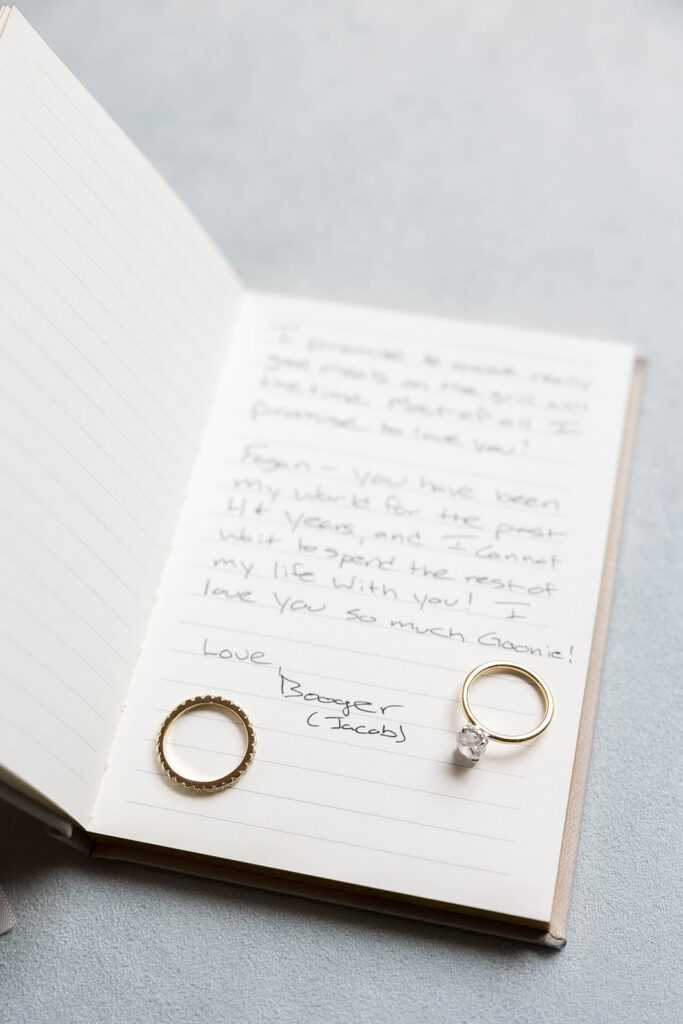 I promise to make really
good meals on the grill all
the time. Most of all I
promise to love you!
Fagan - you have been
my world for the past
4+ years, and I cannot
wait to spend the rest of
my life with you! I
love you so much Goonie!
Love
Booger
(Jacob)